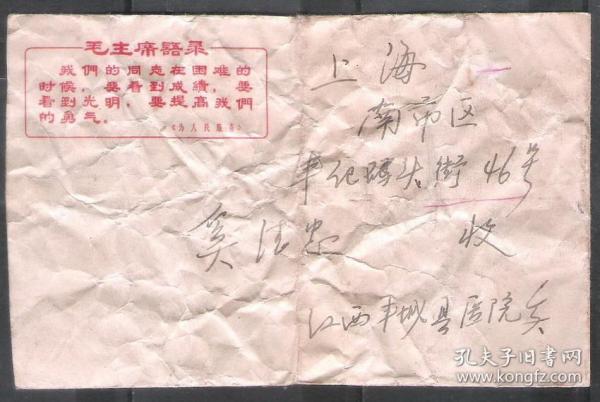 毛主席語录
我們的同志在困难的
时候，要看到成績，要
看到光明，要提高我們
的勇气。
《为人民服务》
上海
南市区
丰纪码头街46号
奚法忠 收
江西丰城县医院奚
孔夫子旧书网
www.kongfz.com